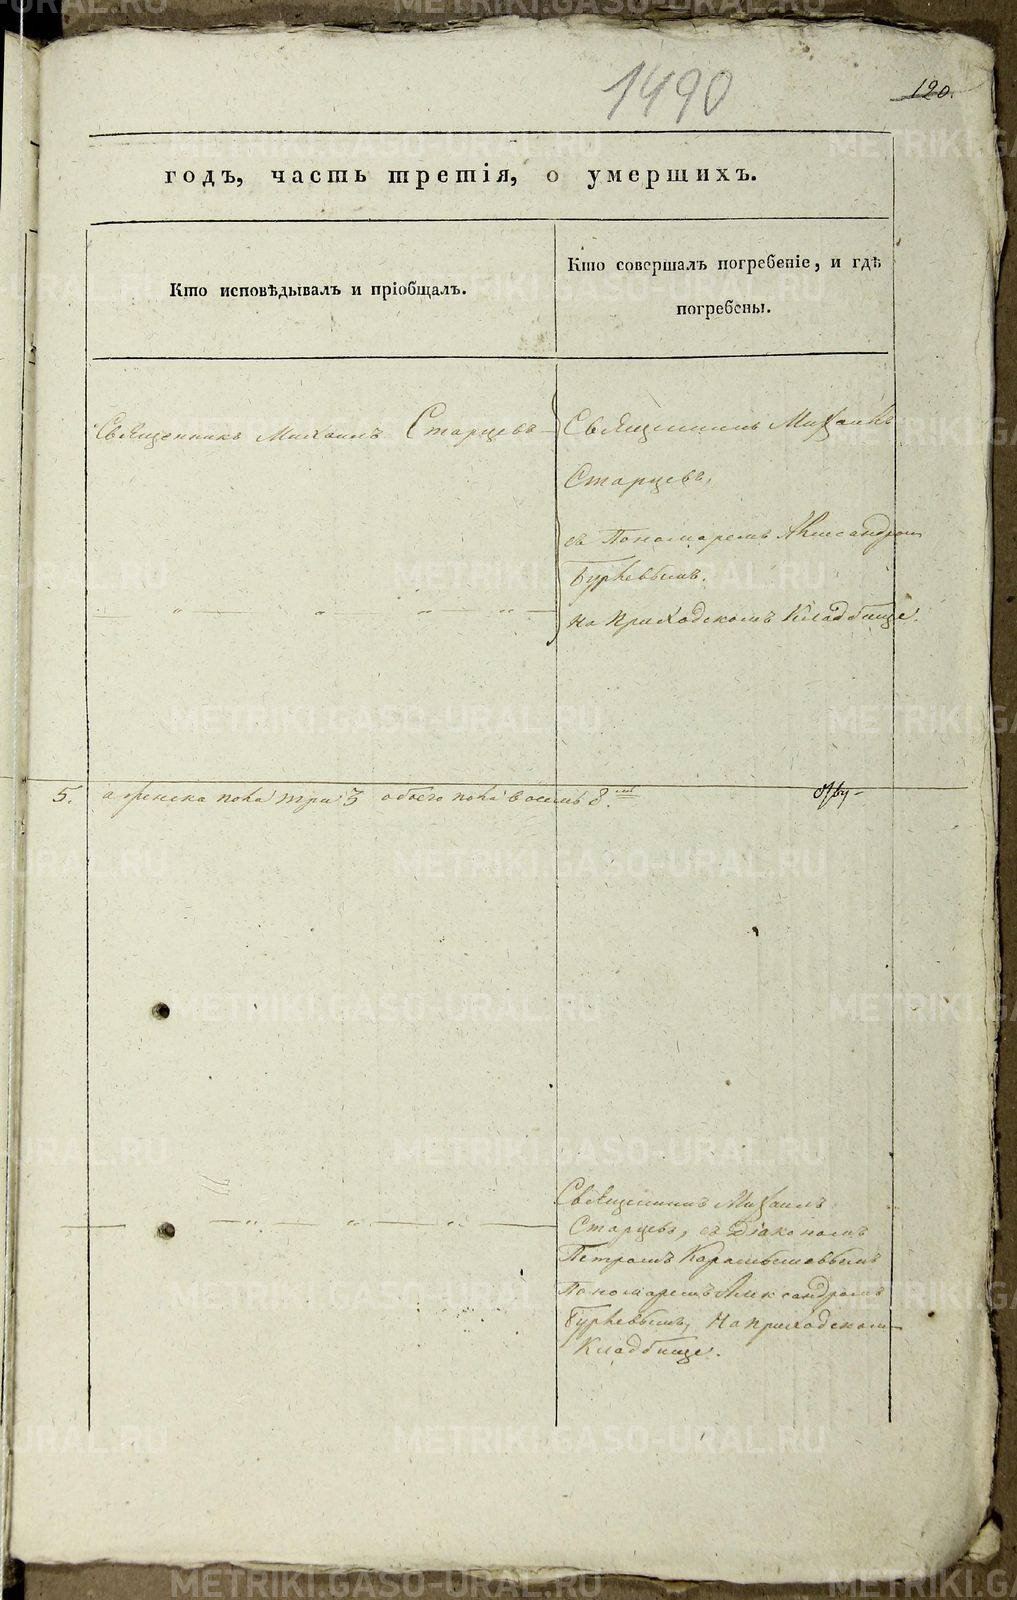 1490
120.
годъ, часть третія, о умершихъ.
Кто исповѣдывалъ и пріобщалъ.
Кто совершалъ погребеніе, и гдѣ
погребены.
Священникъ Михаилъ Старцевъ
Священникъ Михаилъ
Старцевъ,
съ Пономаремъ Александром
на приходскомъ Кладбище.
5. а женска пола три 3 обоего пола восемь 8.
Священникъ Михаилъ
Старцевъ, съ Діакономъ
Петромъ
Пономаремъ Александромъ
На приходском
Кладбище.
METRIKI.GASO-URAL.RU